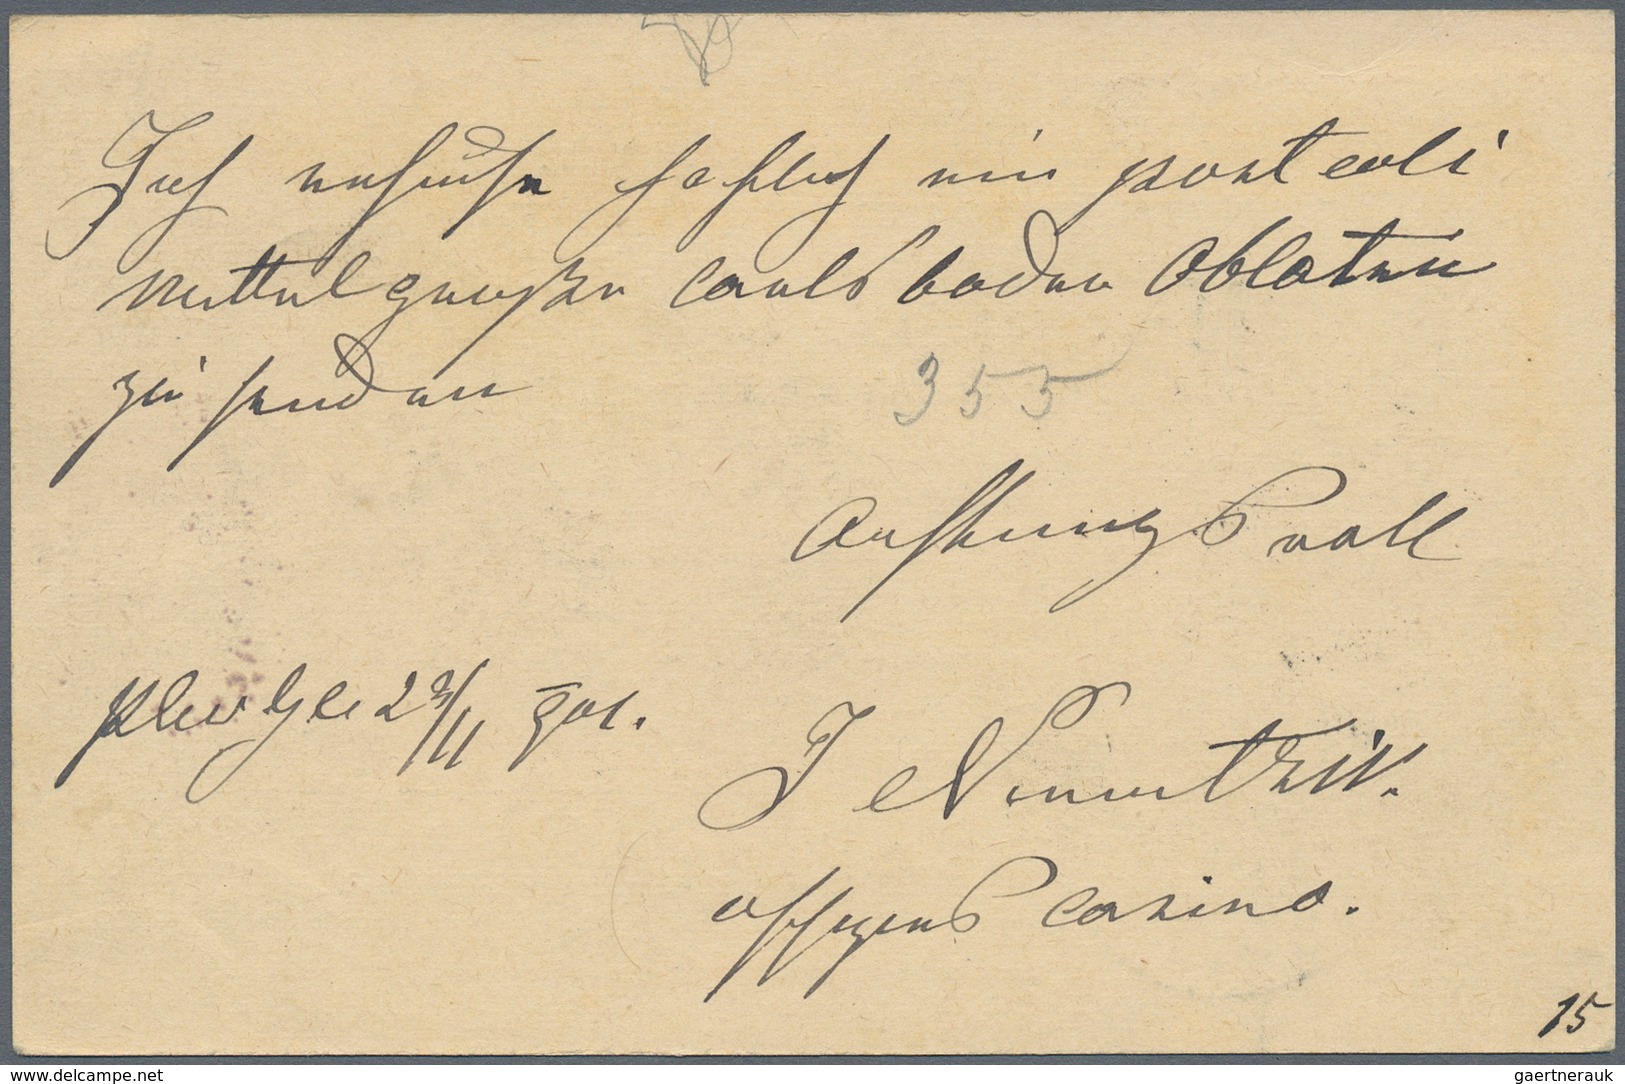 Ich ersuche höflich ein postcoli
Mittel große Carlsbader Oblaten
zu senden
355
Achtungsvoll
Plevlje 23/11 901.
J
Offiziers Casino.
15
www.delcampe.net
gaertnerauk